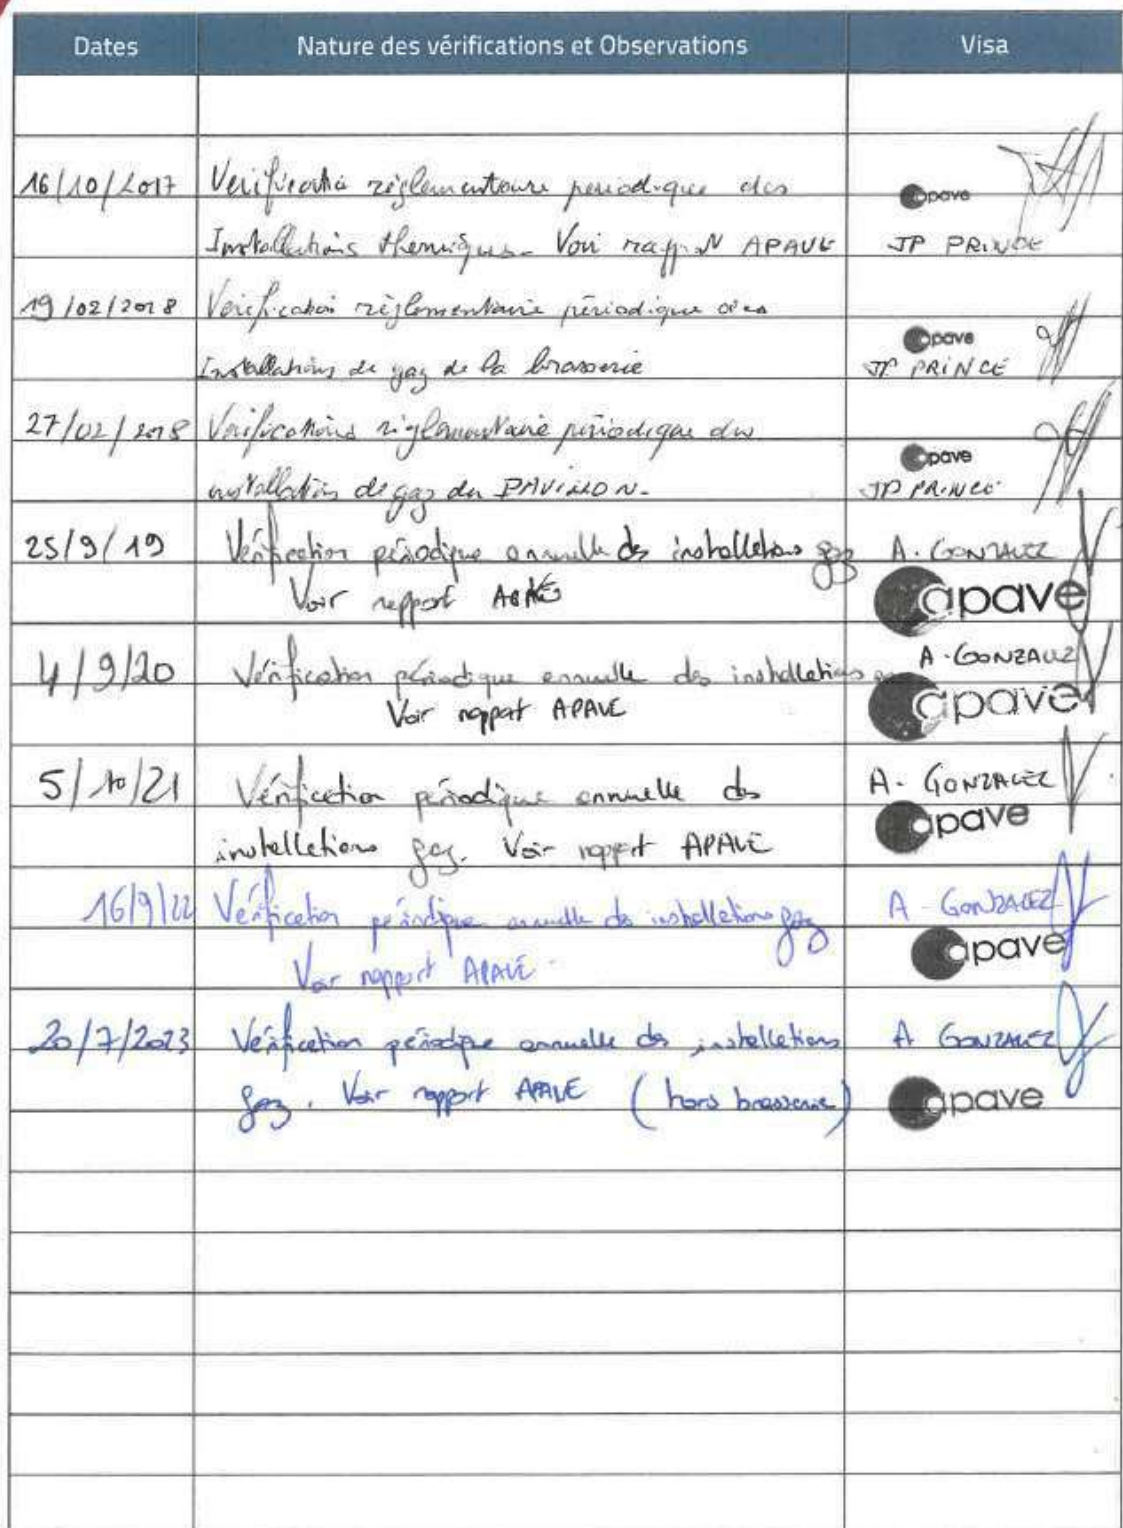 Dates Nature des vérifications et Observations Visa
16/10/2017 Verification réglementaire periodique des apave
Installations thermiques - Voir rapport APAVE JP PRINCE
19/02/2018 Verification réglementaire périodique des apave
Installations de gaz de la brasserie JP PRINCE
27/02/2018 Verifications réglementaire périodique des apave
installation de gaz du PAVILLON - JP PRINCE
25/9/19 Vérification périodique annuelle des installations gaz A. GONZALEZ
Voir rapport apave
4/9/20 Vérification périodique annuelle des installations A. GONZALEZ
Voir rapport APAVE apave
5/10/21 Vérification périodique annuelle des A. GONZALEZ
installations gaz. Voir rapport APAVE apave
16/9/22 Vérification périodique annuelle des installations gaz A. GONZALEZ
Voir rapport APAVE. apave
20/7/2023 Vérification périodique annuelle des installations A GONZALEZ
gaz. Voir rapport APAVE (hors brasserie) apave